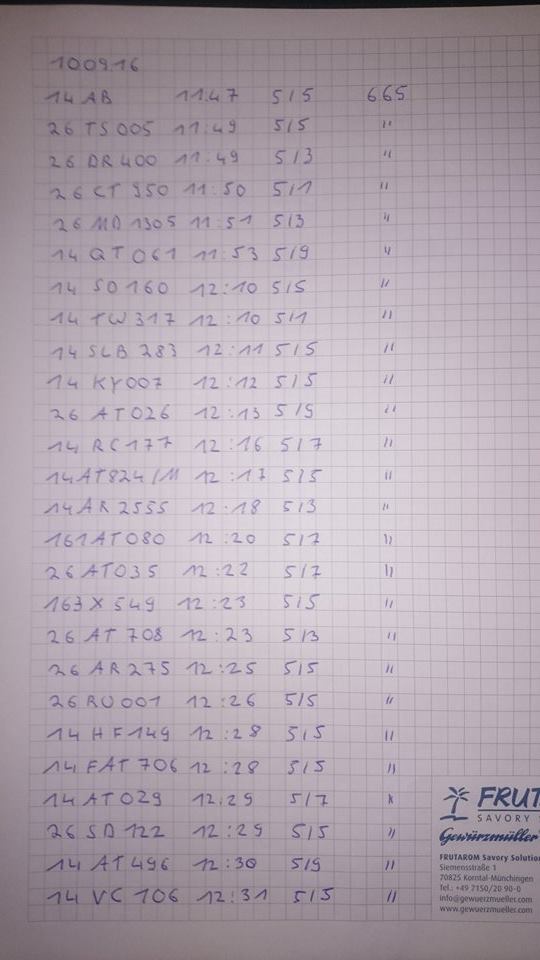 10.09.16
14 AB 11:47 5/5 665
26 TS 005 11:49 5/5 "
26 DR 400 11:49 5/3 "
26 CT 950 11:50 5/1 "
26 MD 1305 11:51 5/3 "
14 QT 061 11:53 5/9 "
14 SO 160 12:10 5/5 "
14 TW 317 12:10 5/1 "
14 SLB 283 12:11 5/5 "
14 KY 007 12:12 5/5 "
26 AT 026 12:13 5/9 "
14 RC 177 12:16 5/7 "
14 AT 824/M 12:17 5/5 "
14 AR 2555 12:18 5/3 "
161 AT 080 12:20 5/7 "
26 AT 035 12:22 5/7 "
163 X 549 12:23 5/5 "
26 AT 708 12:23 5/3 "
26 AR 275 12:25 5/5 "
26 RO 001 12:26 5/5 "
14 HF 149 12:28 5/5 "
14 FAT 706 12:28 5/5 "
14 AT 029 12:29 5/7 "
26 SD 122 12:29 5/5 "
14 AT 496 12:30 5/9 "
14 VC 106 12:31 5/5 "
FRUT
SAVORY
Gewürzmüller
FRUTAROM Savory Solution
Siemensstraße 1
70825 Korntal-Münchingen
Tel.: +49 7150/20 90-0
info@gewuerzmueller.com
www.gewuerzmueller.com